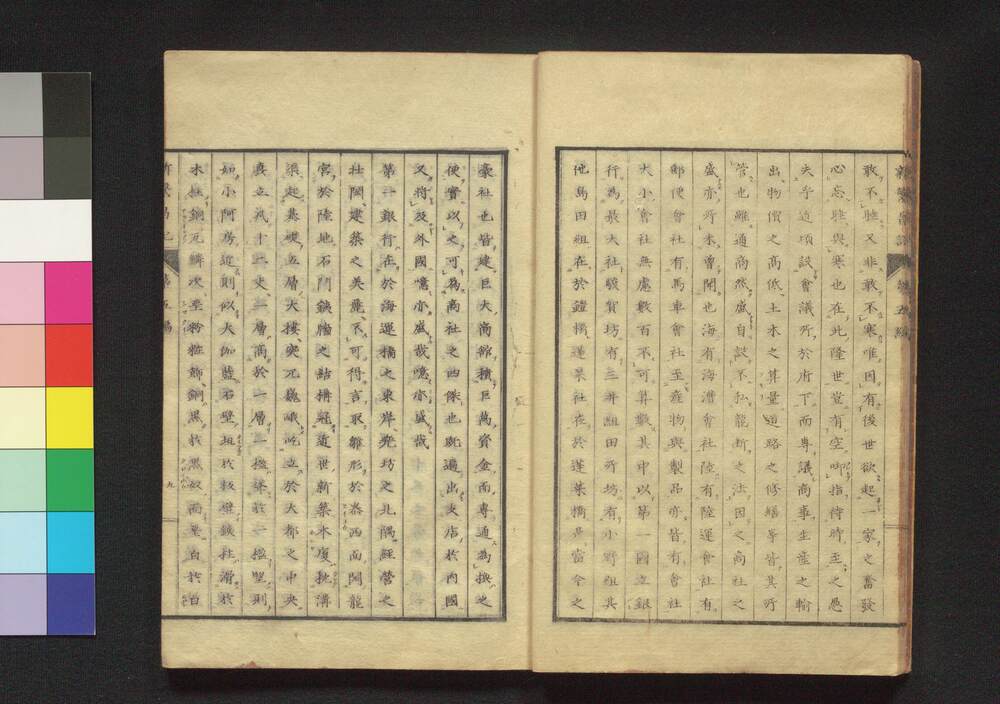 敢不、馳、又非敢不、寒、唯因有後世欲起一家之奮發
心、忘、馳與寒也、在此隆世豈有空啣指待時至之愚
夫乎、近頃設會議所、於所下而專議商事、生産之輸
出物價之高低、土木之算量、道路之修繕等皆其所
管也、雖通商然盛、自設不私龍斷之法、因之商社之
盛亦所未曾聞也、海有海漕會社、陸有陸運會社、有
郵便會社、有馬車會社、至產物與製品亦皆有會社
大小會社無慮數百不可算數、其中以第一國立銀
行爲最大、社駿賀坊有三井組、田所坊有小野組、其
他島田組在於鎧橋、蓬萊社在於蓬萊橋、是當今之
豪社也、皆建巨大商館、積巨萬資金、而專通爲換之
便、實以之可爲商社之四傑也、既遍出支店於內國
又將及外國、噫亦盛哉、噫亦盛哉
第一銀行在於海運橋之東岸、兜坊之北隅、經營之
壯闊、建築之美麗、不可得言、取雛形於泰西而闢龍
宮於陸地、石門鐵牆之結構冠近世新築、木廈挑溝
梁起、甍峻五層大樓、突兀巍峨、屹立於大都之中央
廣立幾十二丈、三層高於一層、一檻  於一檻、望則
如小阿房、近則似大伽藍、石壁垣於板壁、鐵柱滑於
木柱、銅瓦鱗次、堊粉粧飾、銅黒於黒奴、而堊白於白
新繁昌記 第五編 九